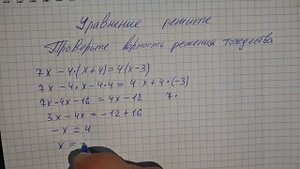 Уравнение решите
Проверьте верность решения тождества
7x - 4·(x+4) = 4(x-3)
7x - 4·x - 4·4 = 4·x + 4·(-3)
7x - 4x - 16 = 4x - 12 7·
3x - 4x = -12 + 16
-x = 4
x =